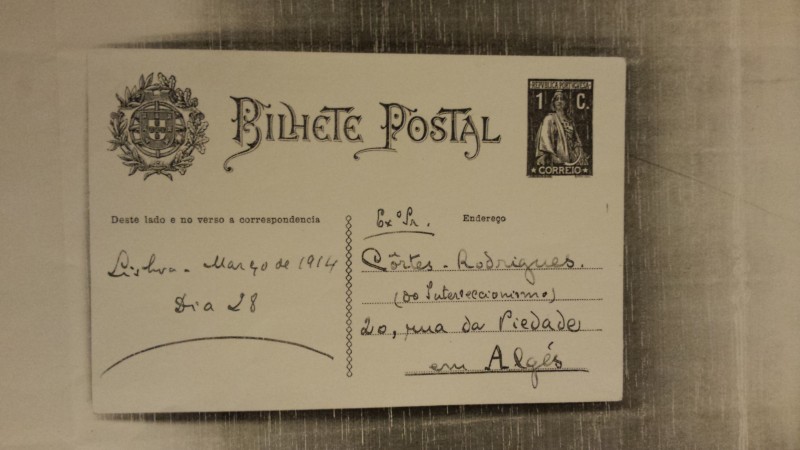 BILHETE POSTAL
REPUBLICA PORTUGUESA
1 C.
CORREIO
Deste lado e no verso a correspondencia
Lisboa - Março de 1914
Dia 28
Exº Sr.
Endereço
Côrtes-Rodrigues.
(do Interseccionismo)
20, rua da Piedade
em Algés